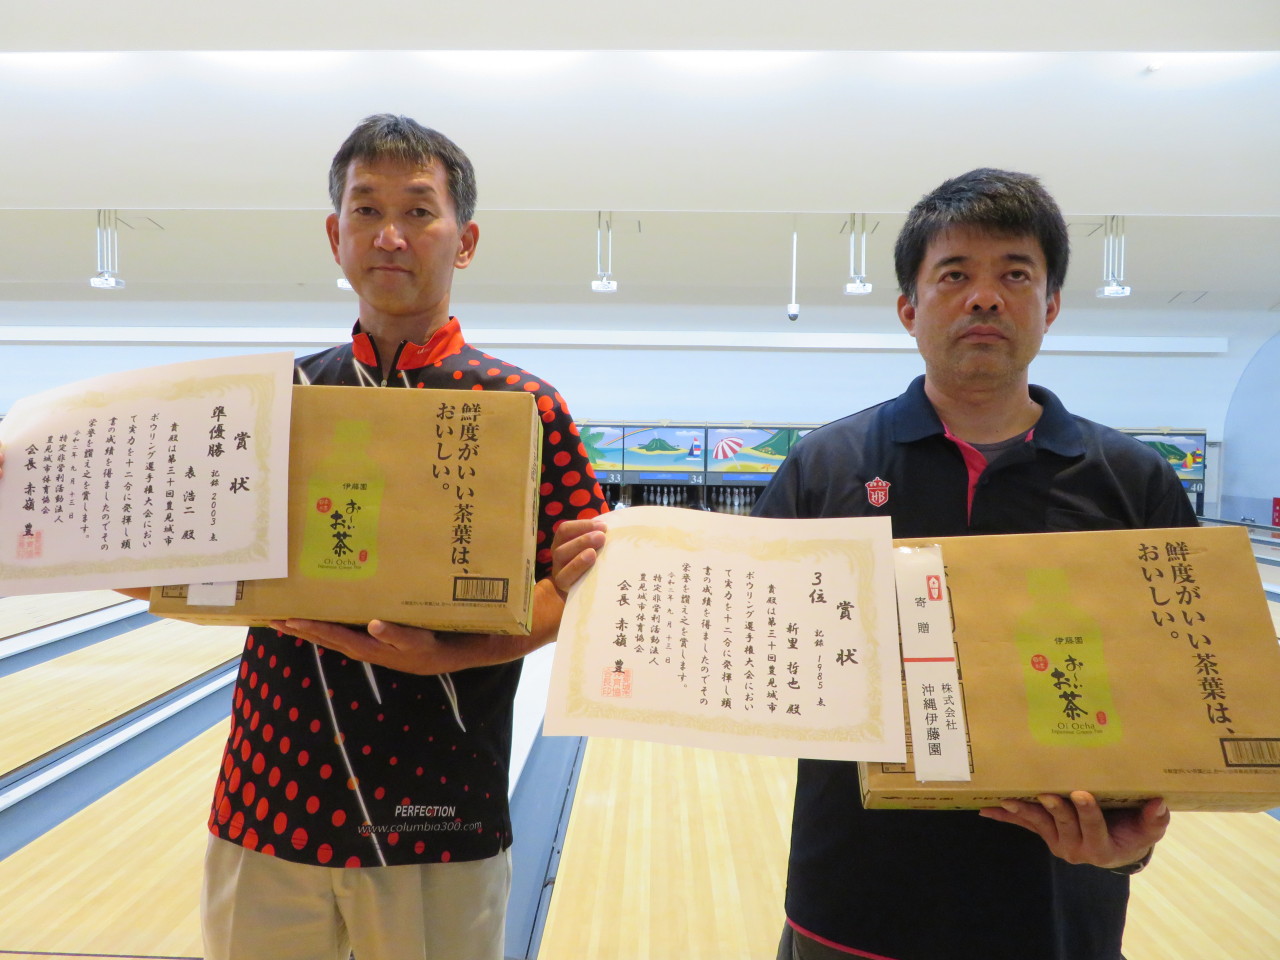 賞状
準優勝 記録 2003 点
表 浩二 殿
貴殿は第三十回豊見城市
ボウリング選手権大会におい
て実力を十二分に発揮し頭
書の成績を得ましたのでその
栄誉を讃え之を賞します。
令和二年 九月 十三日
特定非営利活動法人
豊見城市体育協会
会長 赤嶺 豊
鮮度がいい茶葉は、
おいしい。
伊藤園
お〜いお茶
Oi Ocha
Japanese Green Tea
PERFECTION
www.columbia300.com
33
34
40
賞状
3位 記録 1985 点
新里 哲也 殿
貴殿は第三十回豊見城市
ボウリング選手権大会におい
て実力を十二分に発揮し頭
書の成績を得ましたのでその
栄誉を讃え之を賞します。
令和二年 九月 十三日
特定非営利活動法人
豊見城市体育協会
会長 赤嶺 豊
HB
寄贈
株式会社
沖縄伊藤園
鮮度がいい茶葉は、
おいしい。
伊藤園
お〜いお茶
Oi Ocha
Japanese Green Tea